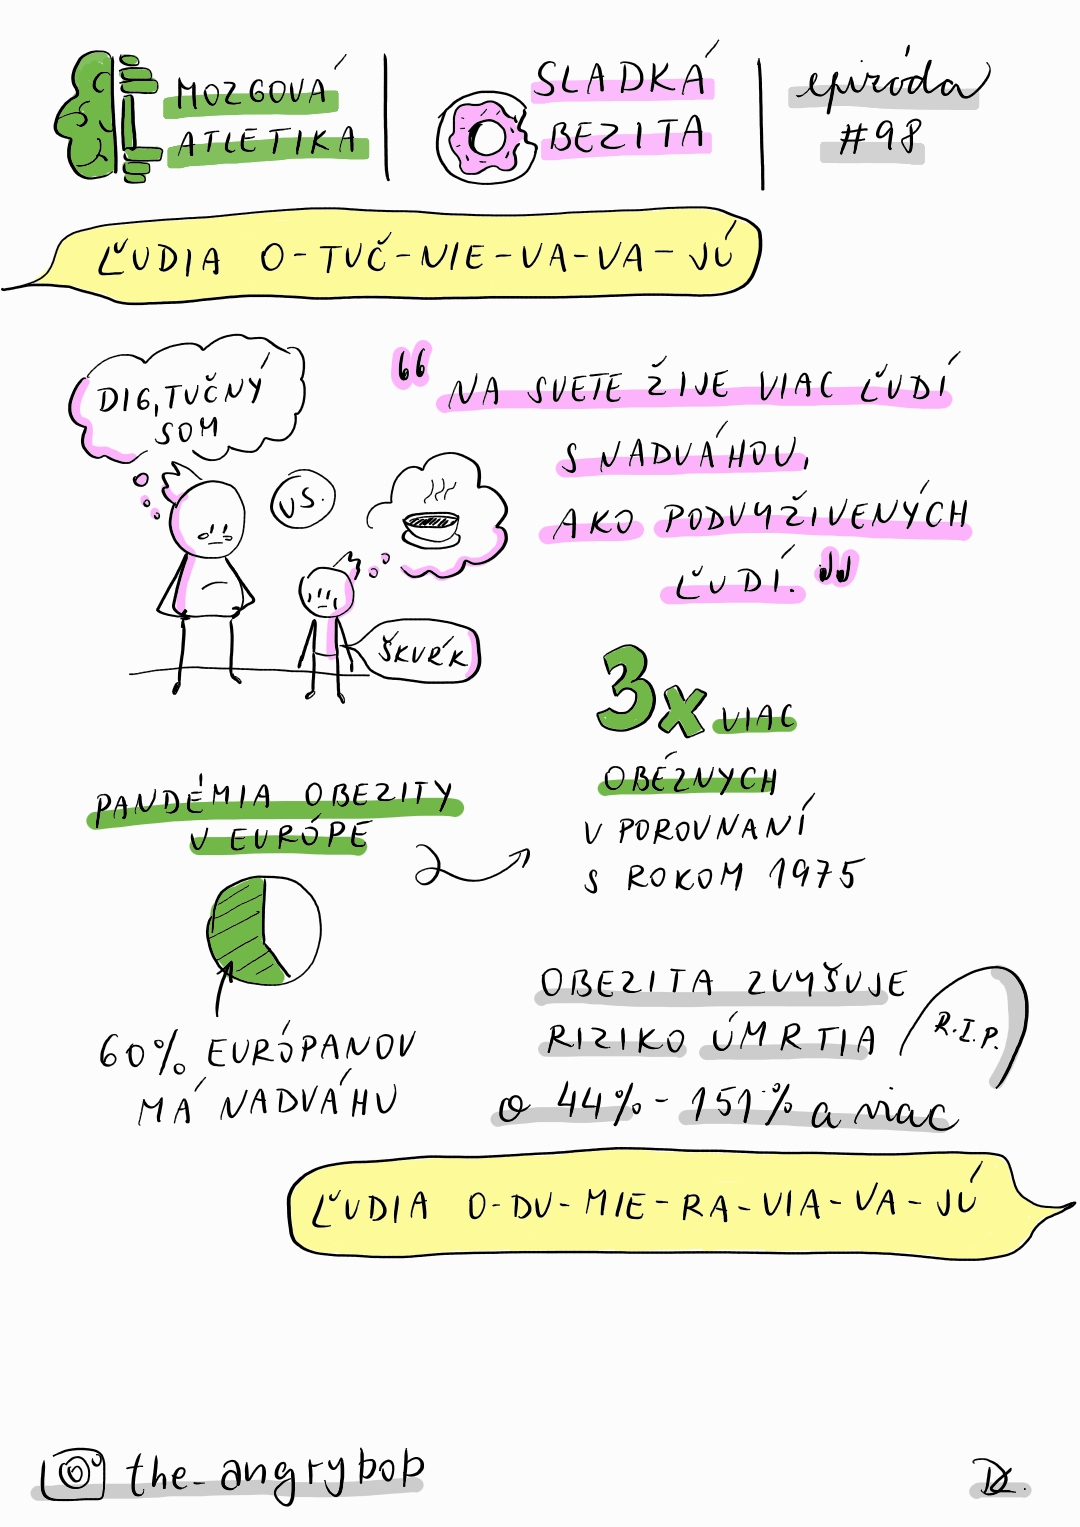 MOZGOVÁ
ATLETIKA
SLADKÁ
BEZITA
epizóda
#98
ĽUDIA O-TUČ-NIE-VA-VA-JÚ
DIG, TUČNÝ
SOM
VS.
ŠKVŔK
“ NA SVETE ŽIJE VIAC ĽUDÍ
S NADVÁHOU,
AKO PODVYŽIVENÝCH
ĽUDÍ. ”
3x VIAC
OBÉZNYCH
V POROVNANÍ
S ROKOM 1975
PANDÉMIA OBEZITY
V EURÓPE
60% EURÓPANOV
MÁ NADVÁHU
OBEZITA ZVYŠUJE
RIZIKO ÚMRTIA
o 44% - 151% a viac
R.I.P.
ĽUDIA O-DU-MIE-RA-VIA-VA-JÚ
the_angrybop